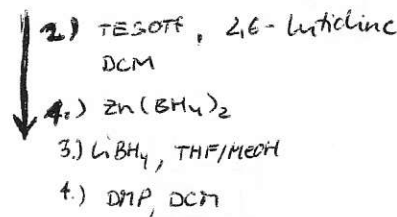 2) TESOTf, 2,6-Lutidine
DCM
1.) Zn(BH4)2
3.) LiBH4, THF/MeOH
4.) DMP, DCM